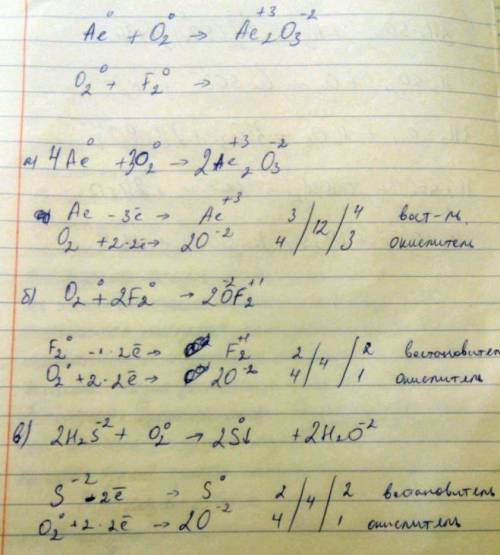 Al⁰ + O₂⁰ → Al₂⁺³O₃⁻²
O₂⁰ + F₂⁰ →
а) 4Al⁰ + 3O₂⁰ → 2Al₂⁺³O₃⁻²
Al − 3ē → Al⁺³ 3 / 12 / 4 вост-ль
O₂ + 2·2ē → 2O⁻² 4 / / 3 окислитель
б) O₂⁰ + 2F₂⁰ → 2O⁻²F₂⁺¹
F₂⁰ − 1·2ē → F₂⁺¹ 2 / 4 / 2 востановитель
O₂⁰ + 2·2ē → 2O⁻² 4 / / 1 окислитель
в) 2H₂S⁻² + O₂⁰ → 2S⁰↓ + 2H₂O⁻²
S⁻² − 2ē → S⁰ 2 / 4 / 2 востановитель
O₂⁰ + 2·2ē → 2O⁻² 4 / / 1 окислитель